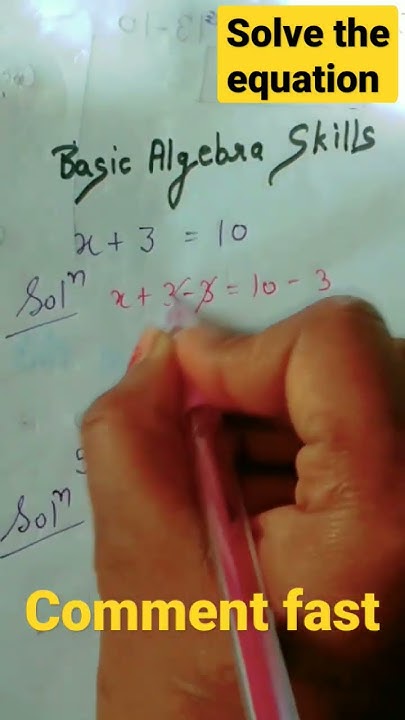 Solve the
equation
Basic Algebra Skills
x + 3 = 10
Solⁿ x + 3 - 3 = 10 - 3
Solⁿ
Comment fast